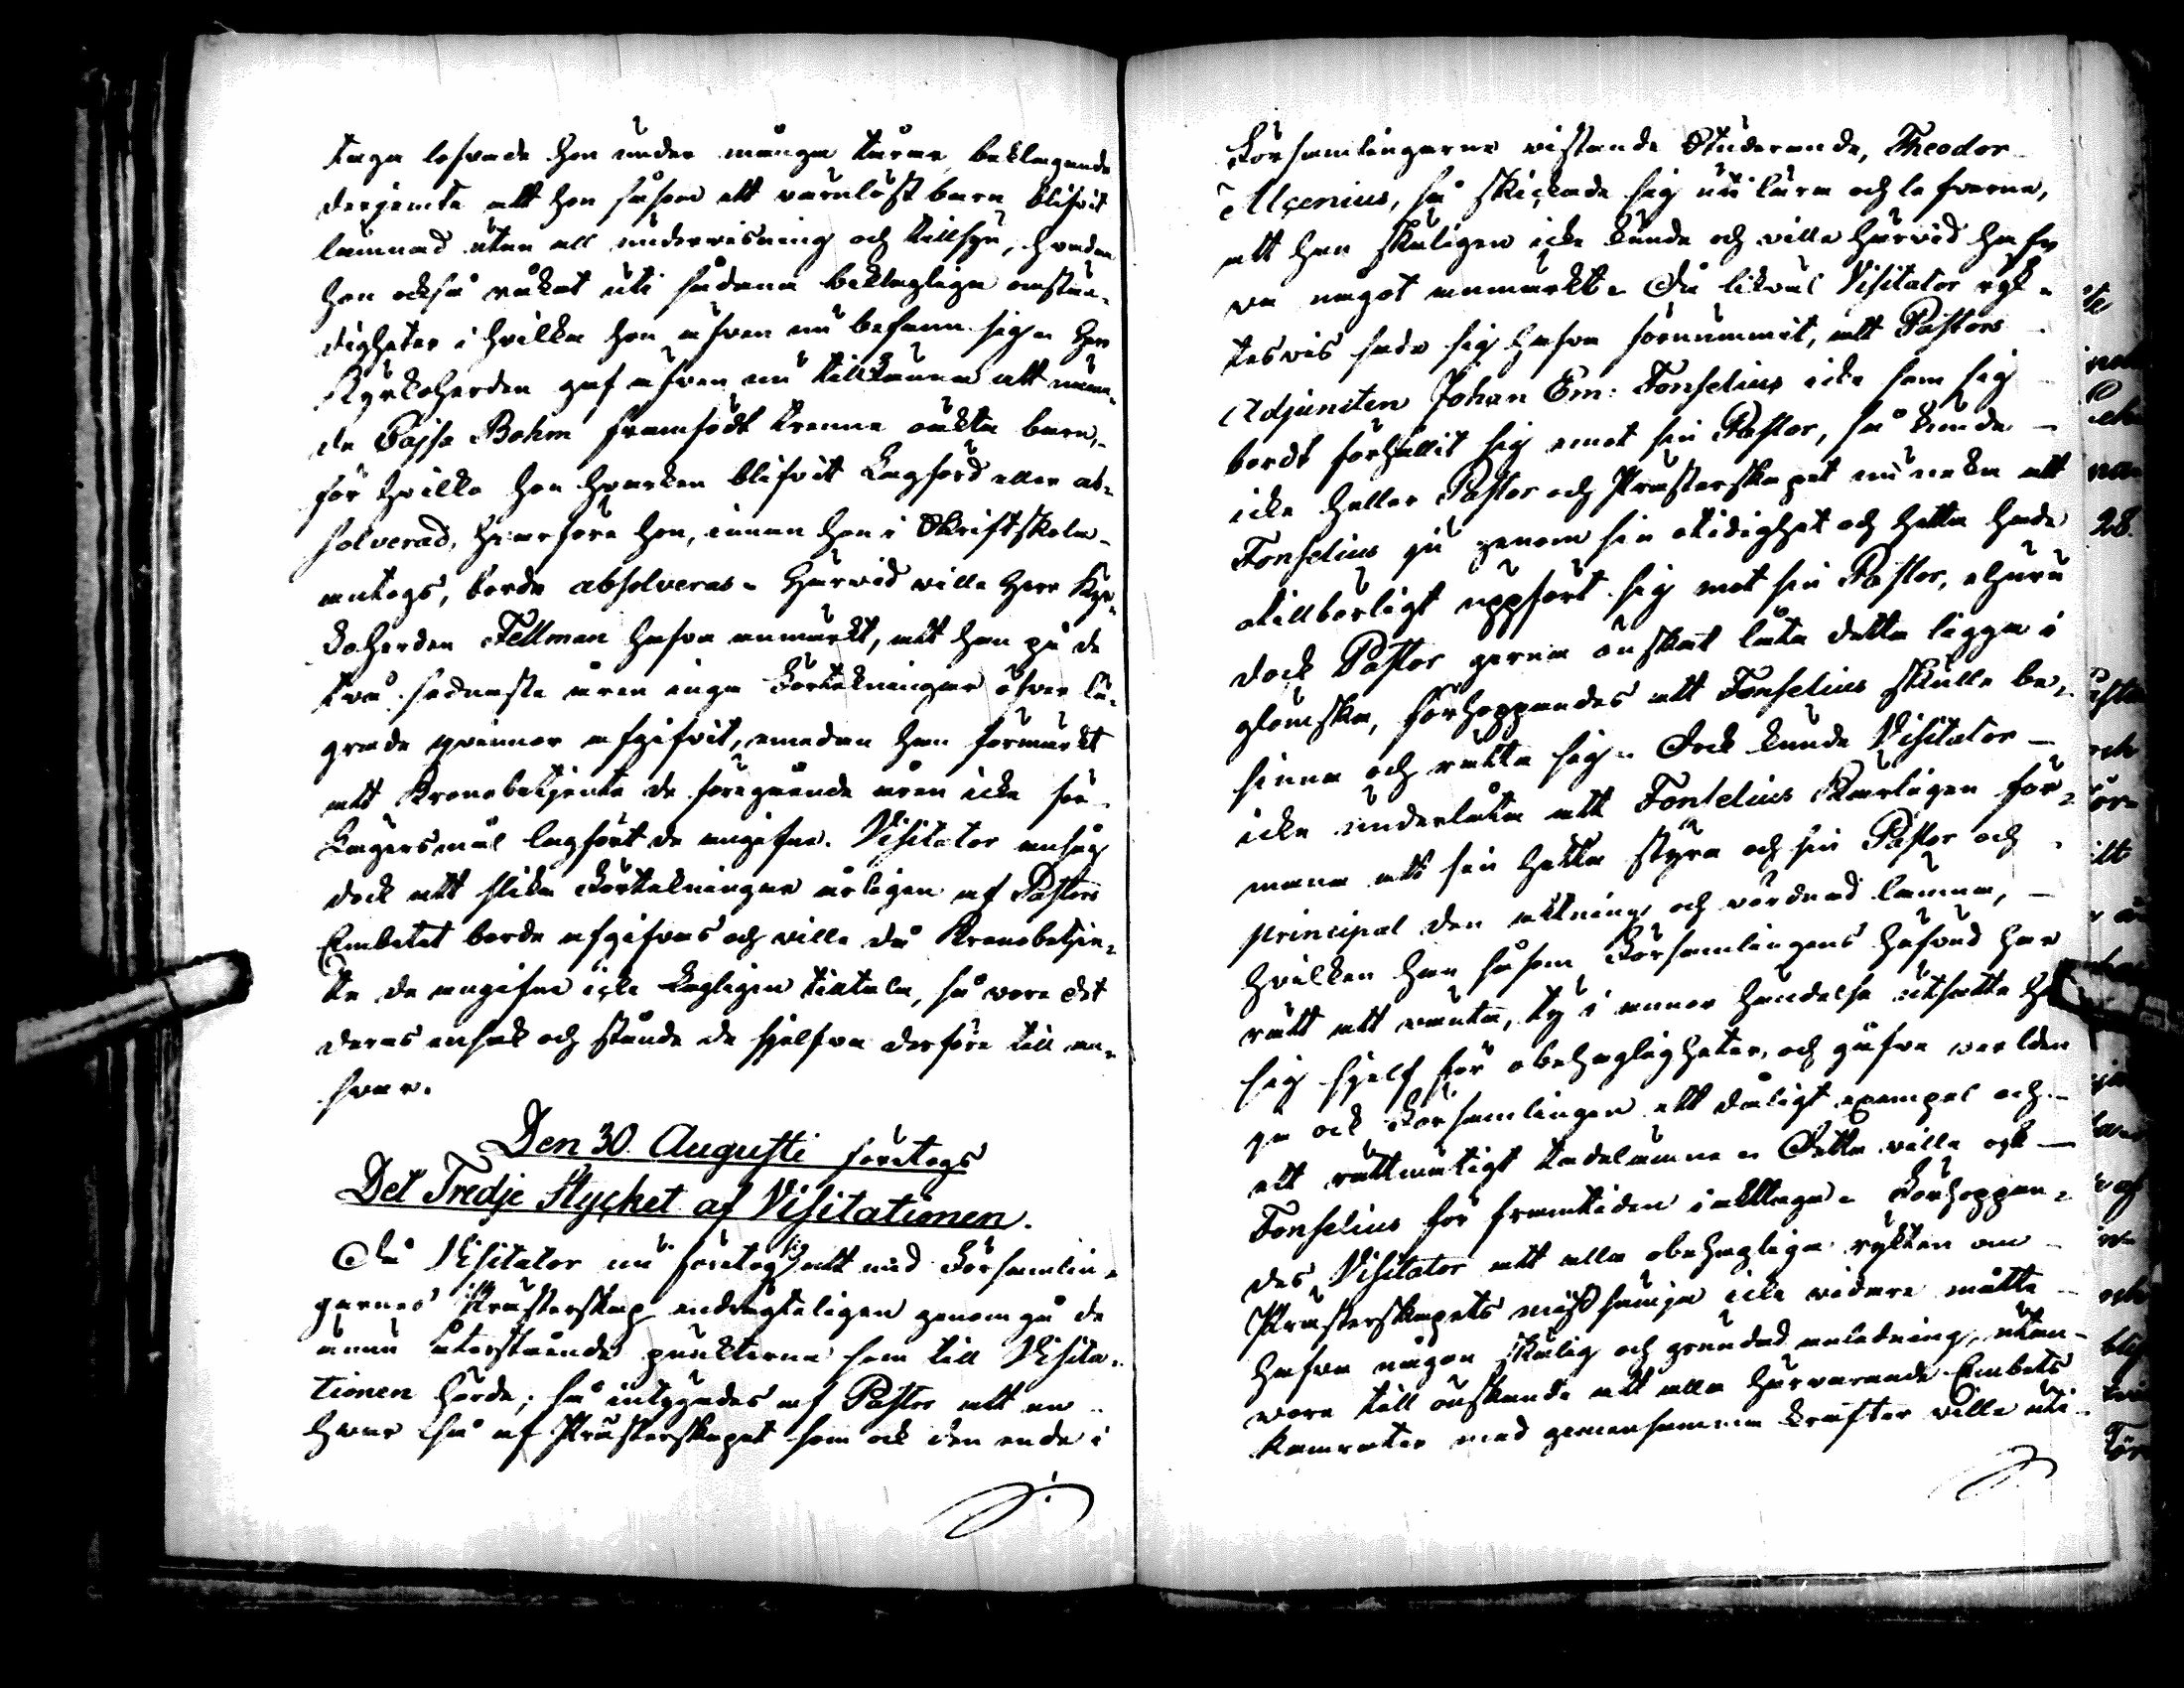 taga lofvade hon under många tårar, beklagande
derjemte att hon såsom ett värnlöst barn blifvit
lämnad utan all undervisning och tillsyn, hvadan
hon också råkat uti sådana beklagliga omstän-
digheter i hvilka hon äfven nu befann sig. Herr
Kyrkoherden gaf äfven nu tillkänna att nämn-
de Cajsa Bohm framfödt trenne oäkta barn,
för hvilka hon hvarken blifvit Lagförd eller ab-
solverad, hvarföre hon, innan hon i Skriftskola
antogs, borde absolveras. Härvid ville Herr Kyr-
koherden Fellman hafva anmärkt, att han på de
två sednaste åren inga Förtekningar öfver lä-
grade qvinnor afgifvit, emedan han förmärkt
att Kronobetjente de föregående åren icke för
Lägersmål lagfört de angifna. Visitator ansåg
dock att slika Förtekningar årligen af Pastors
Embetet borde afgifvas och ville då Kronobetjen-
te de angifna icke Lagligen tilltala, så vore det
deras ensak och stånde de sjelfva derföre till an-
svar.
Den 30. Augusti företogs
Det Tredje Stycket af Visitationen.
Då Visitator nu företog sig att med Församlin-
garnes Prästerskap endrägteligen genomgå de
ännu återstående punkterna som till Visita-
tionen hörde; så intygades af Pastor att en
hvar så af Prästerskapet som ock den ende i
Församlingarne vistande Studerande, Theodor
Alcenius, så skickade sig uti lära och lefverne,
att han skäligen icke kunde och ville härvid haf-
va något anmärkt. Då likväl Visitator ryk-
tesvis sade sig hafva förnummit, att Pastors
Adjuncten Johan Em: Fonselius icke som sig
bordt förhållit sig emot sin Pastor, så kunde
icke heller Pastor och Prästerskapet nu neka att
Fonselius ju genom sin otidighet och hetta hade
otillbörligt uppfört sig mot sin Pastor, ehuru
dock Pastor gerna önskat låta detta ligga i
glömska, förhoppandes att Fonselius skulle be-
sinna och rätta sig. Dock kunde Visitator
icke underlåta att Fonselius Kärligen för-
mana att sin hetta styra och sin Pastor och
principal den aktning och vördnad lämna,
hvilken han såsom Församlingens hufvud har
rätt att vänta, ty i annor händelse utsatte han
sig sjelf för obehagligheter, och gåfve verlden
ja ock Församlingen ett dåligt exempel och
ett rättmätigt tadelämne. Detta ville ock
Fonselius för framtiden iakttaga. Förhoppan-
des Visitator att alla obehagliga rykten om
Prästerskapets misssämja icke vidare måtte
hafva någon skälig och grundad anledning, utan
vore till önskande att alla härvarande Embets
kamrater med gemensamma krafter ville uti